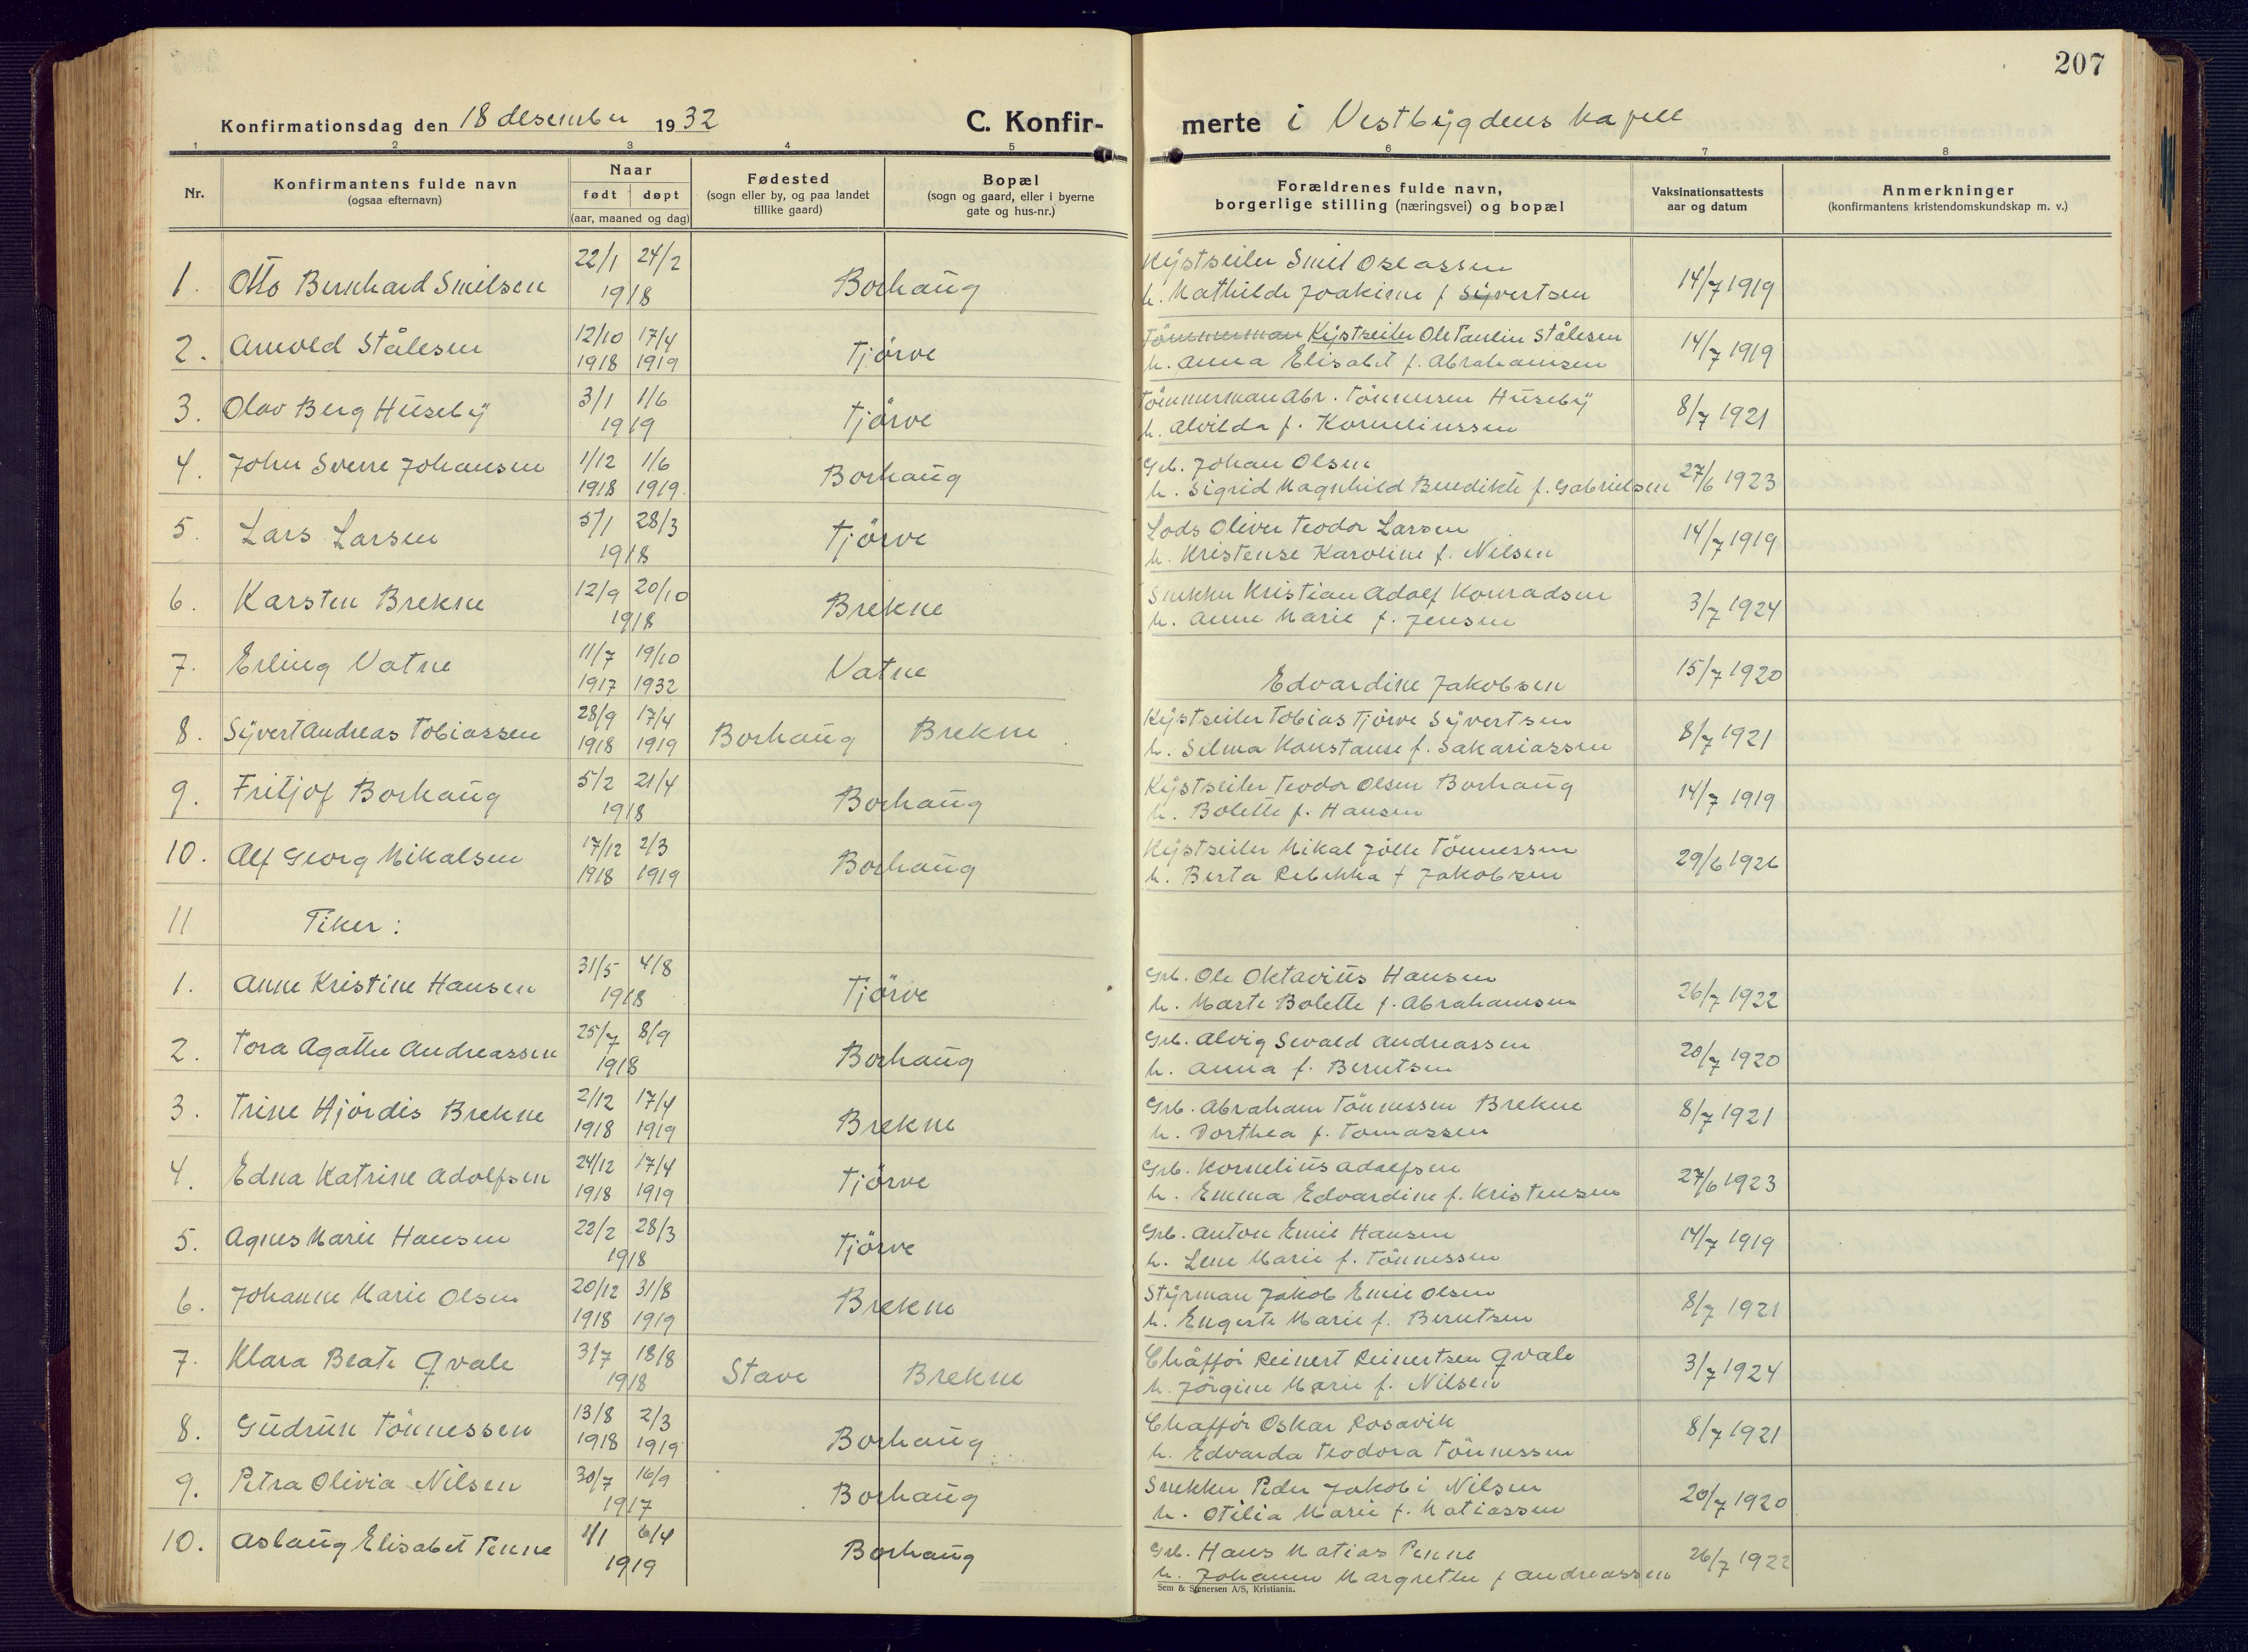 207
Konfirmationsdag den 18 desember 1932 C. Konfir-
merte i Vestbygdens kapell
1 2 3 4 5 6 7 8
Nr. Konfirmantens fulde navn (ogsaa efternavn) Naar født døpt (aar, maaned og dag) Fødested (sogn eller by, og paa landet tillike gaard) Bopæl (sogn og gaard, eller i byerne gate og hus-nr.) Forældrenes fulde navn, borgerlige stilling (næringsvei) og bopæl Vaksinationsattests aar og datum Anmerkninger (konfirmantens kristendomskundskap m. v.)
1. Otto Bernhard Smilsen 22/1 24/2 1918 Borhaug Kystseiler Smil Oseassen h. Mathilde Joakime f Syvertsen 14/7 1919
2. Arnold Stålesen 12/10 1918 17/4 1919 Tjörve Tömmerman Kystseiler Ole Paulin Stålesen h. Anna Elisabet f. Abrahamsen 14/7 1919
3. Olav Berg Huseby 3/1 1/6 1919 Tjörve Tömmerman Abr. Tönnesen Huseby h. Alvilda f. Korneliussen 8/7 1921
4. John Sverre Johansen 1/12 1918 1/6 1919 Borhaug Grb. Johan Olsen h. Sigrid Magnhild Benedikte f. Gabrielsen 27/6 1923
5. Lars Larsen 5/1 28/3 1918 Tjörve Lods Oliver Teodor Larsen h. Kristense Karoline f. Nilsen 14/7 1919
6. Karsten Brekne 12/9 20/10 1918 Brekne Snekker Kristian Adolf Konradsen h. Anne Marie f. Jensen 3/7 1924
7. Erling Vatne 11/7 1917 19/10 1932 Vatne Edvardine Jakobsen 15/7 1920
8. Syvert Andreas Tobiassen 28/9 1918 17/4 1919 Borhaug Brekne Kystseiler Tobias Tjörve Syvertsen h. Selma Konstanse f. Sakariassen 8/7 1921
9. Fritjof Borhaug 5/2 21/4 1918 Borhaug Kystseiler Teodor Olsen Borhaug h. Bolette f. Hansen 14/7 1919
10. Alf Georg Mikalsen 17/12 1918 2/3 1919 Borhaug Kystseiler Mikal Jölle Tönnessen h. Berta Rebekka f Jakobsen 29/6 1926
11 Piker:
1. Anne Kristine Hansen 31/5 4/8 1918 Tjörve Grb. Ole Oktavius Hansen h. Marte Bolette f. Abrahamsen 26/7 1922
2. Tora Agathe Andreassen 25/7 8/9 1918 Borhaug Grb. Alvig Sevald Andreassen h. Anna f. Berntsen 20/7 1920
3. Trine Hjördis Brekne 2/12 1918 17/4 1919 Brekne Grb. Abraham Tönnessen Brekne h. Dorthea f. Tomassen 8/7 1921
4. Edna Katrine Adolfsen 24/12 1918 17/4 1919 Tjörve Grb. Kornelius Adolfsen h. Emma Edvardine f. Kristensen 27/6 1923
5. Agnes Marie Hansen 22/2 28/3 1918 Tjörve Grb. Anton Emil Hansen h. Lene Marie f. Tönnessen 14/7 1919
6. Johanne Marie Olsen 20/12 1918 31/8 1919 Brekne Styrman Jakob Emil Olsen h. Engeste Marie f. Berntsen 8/7 1921
7. Klara Beate Qvale 3/7 18/8 1918 Stave Brekne Chåfför Reinert Reinertsen Qvale h. Jörgine Marie f. Nilsen 3/7 1924
8. Gudrun Tönnessen 13/8 1918 2/3 1919 Borhaug Chafför Oskar Rosavik h. Edvarda Teodora Tönnessen 8/7 1921
9. Petra Olivia Nilsen 30/7 16/9 1917 Borhaug Snekker Peder Jakobi Nilsen h. Otilia Marie f. Matiassen 20/7 1920
10. Aslaug Elisabet Penne 1/1 6/4 1919 Borhaug Grb. Hans Matias Penne h. Johanne Margrethe f Andreassen 26/7 1922
Sem & Stenersen A/S, Kristiania.